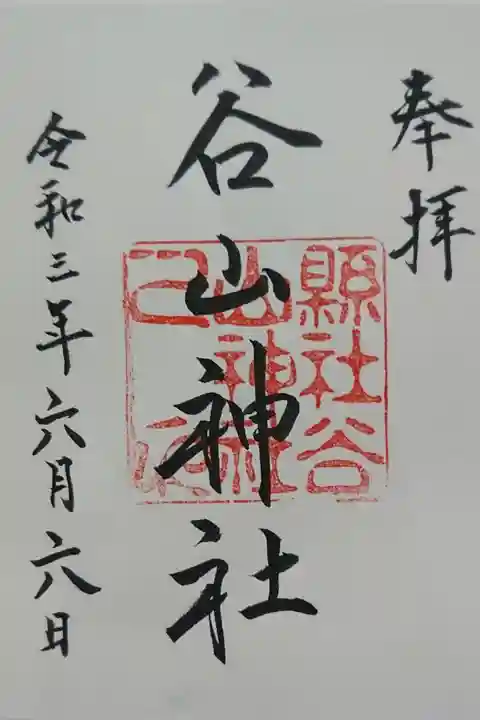 奉拝
谷山神社
令和三年六月六日
縣社谷
山神社
之